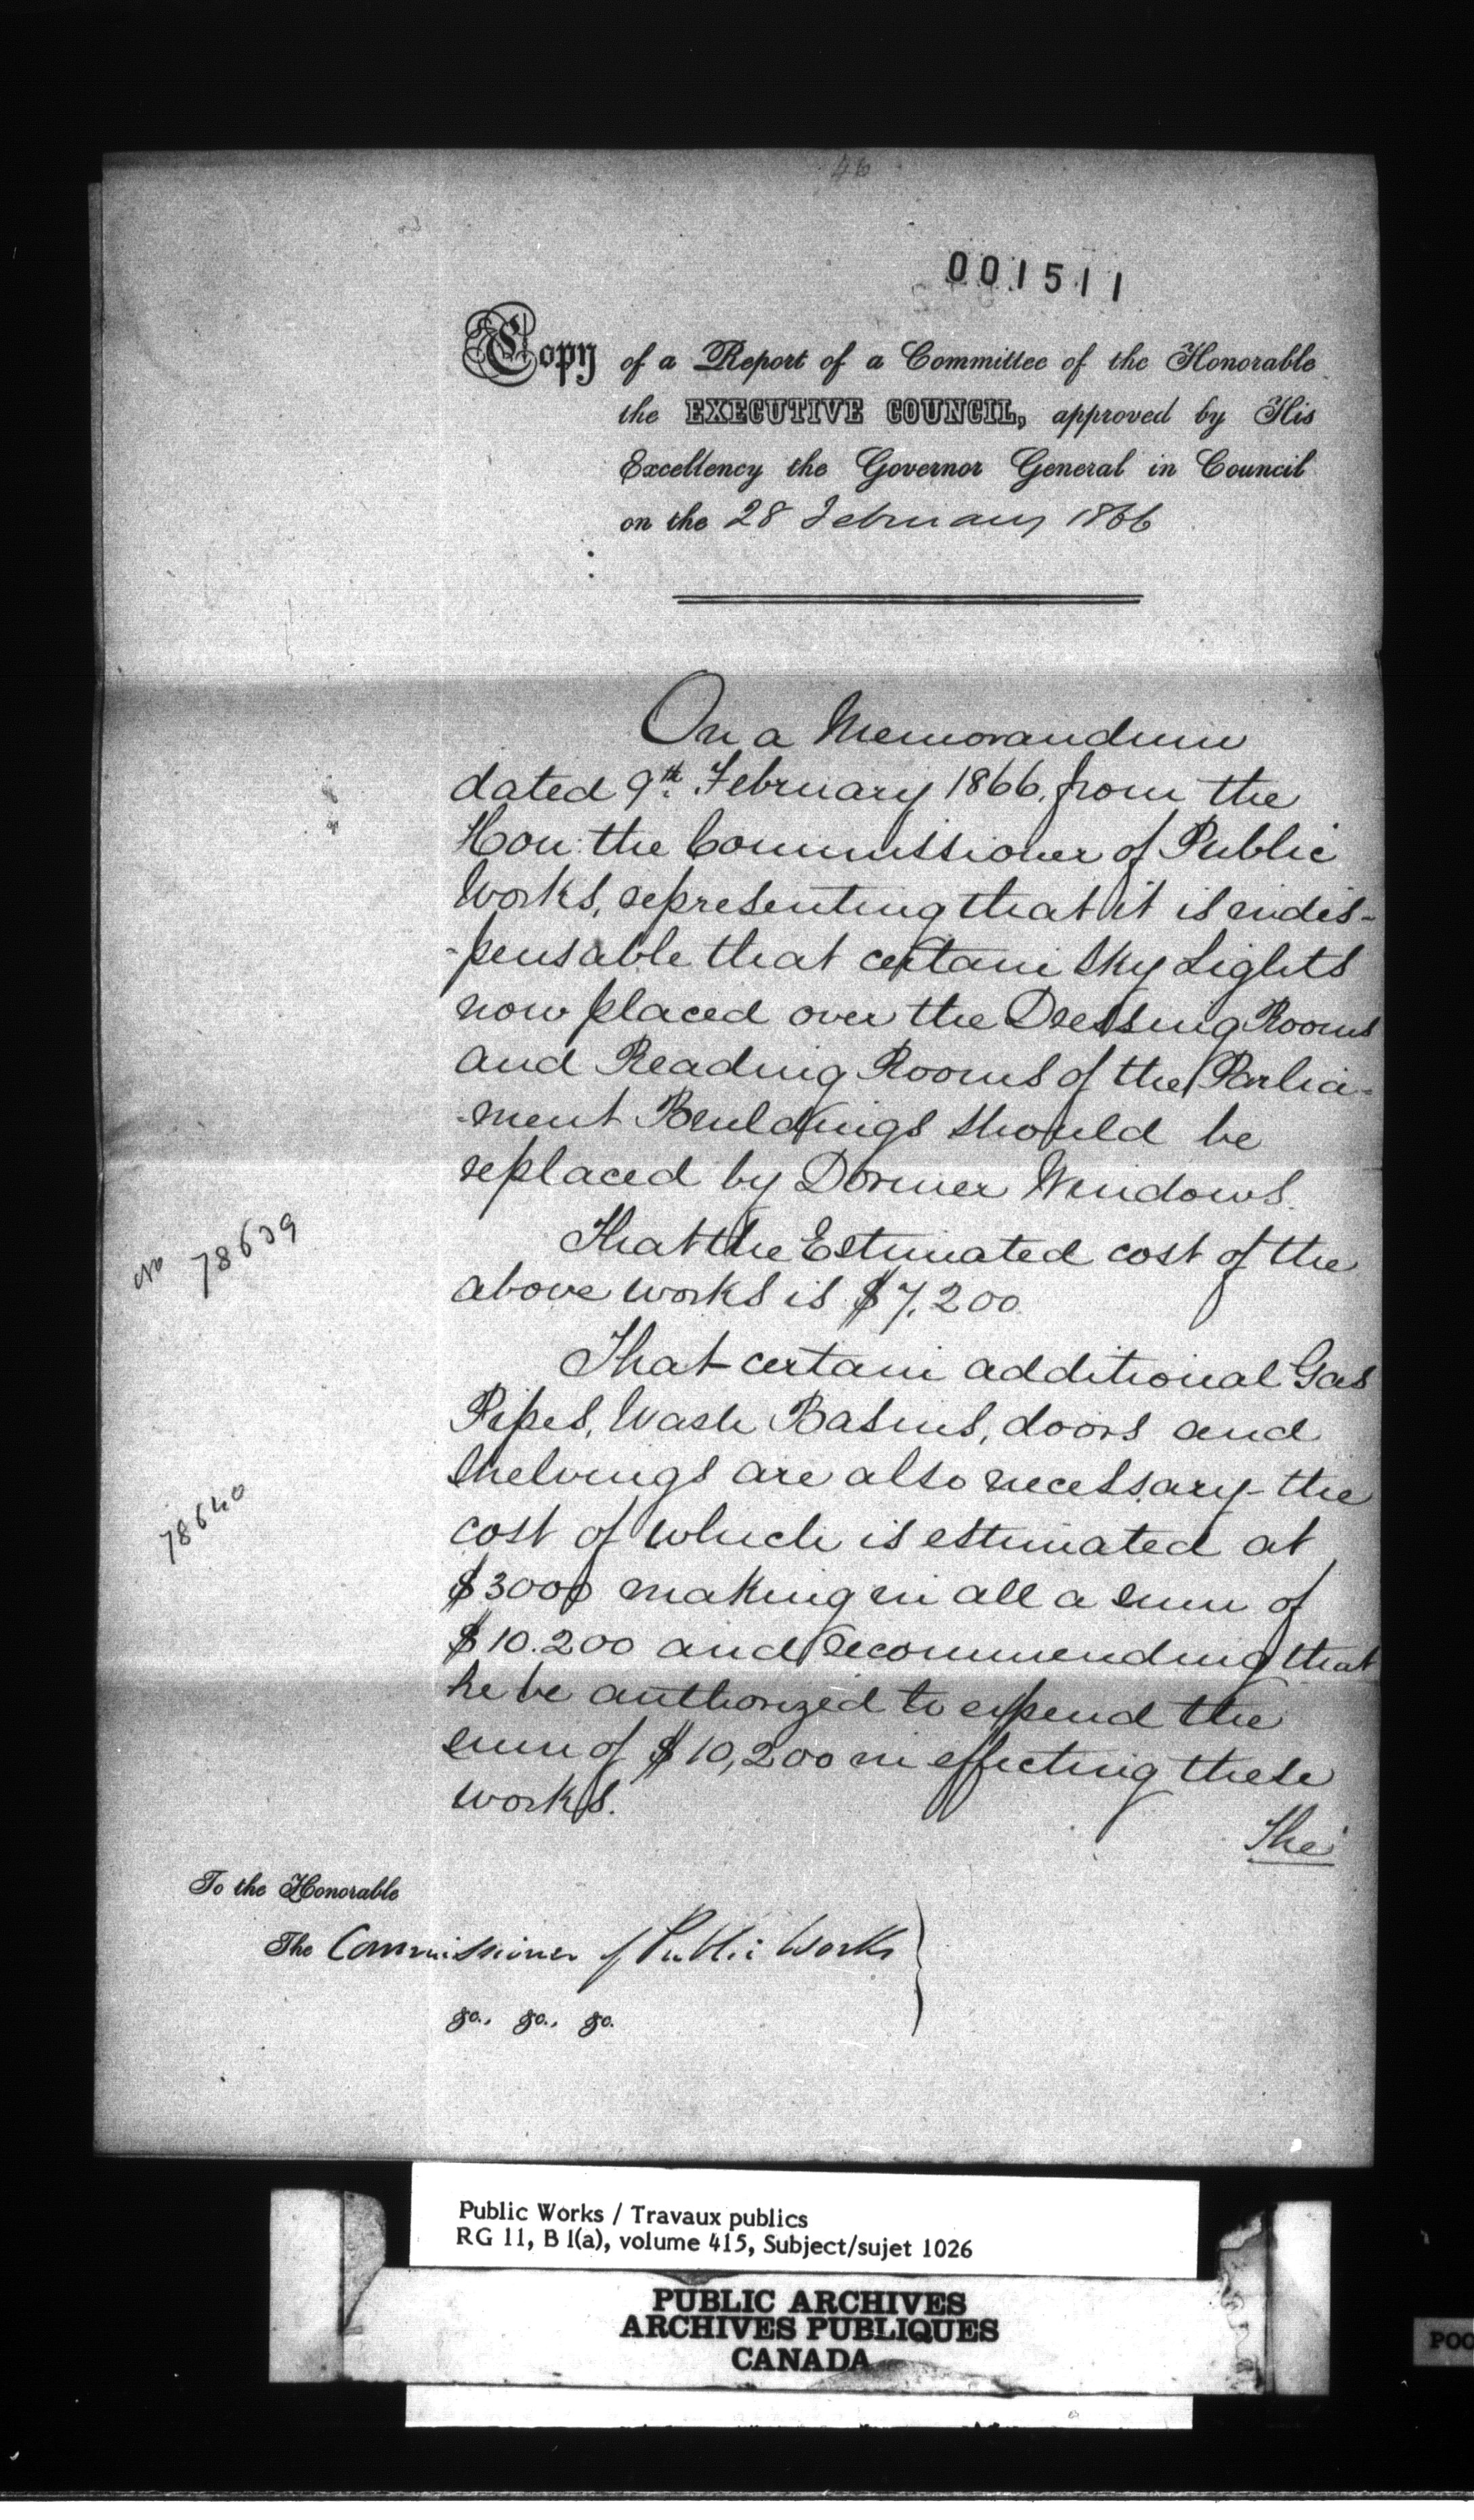 46
001511
Copy of a Report of a Committee of the Honorable
the EXECUTIVE COUNCIL, approved by His
Excellency the Governor General in Council
on the 28 February 1866
On a Memorandum
dated 9th. February 1866, from the
Hon: the Commissioner of Public
Works, representing that it is indis-
-pensable that certain Sky Lights
now placed over the Dressing Rooms
and Reading Rooms of the Parlia-
-ment Buildings should be
replaced by Dormer Windows.
That the Estimated cost of the
above works is $7,200
No 78639
That certain additional Gas
Pipes, Wash Basins, doors and
shelvings are also necessary - the
cost of which is estimated at
78640
$3000 making in all a sum of
$10.200 and recommending that
he be authorized to expend the
sum of $10,200 in effecting these
works.
The
To the Honorable
The Commissioner of Public Works
&c., &c., &c.
Public Works / Travaux publics
RG 11, B 1(a), volume 415, Subject/sujet 1026
PUBLIC ARCHIVES
ARCHIVES PUBLIQUES
CANADA
POO